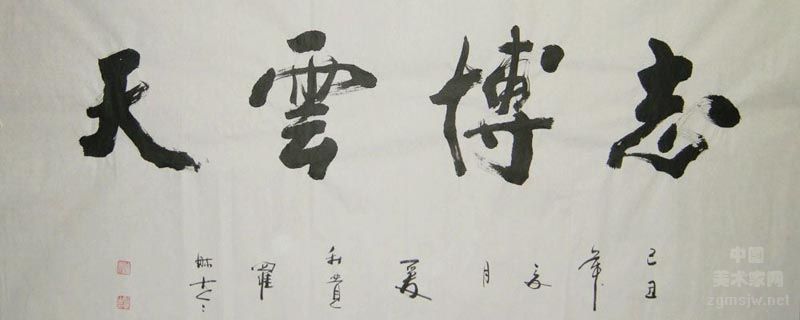 志博雲天
己丑年 月夏利貴
中国
美术家网
zgmsjw.net